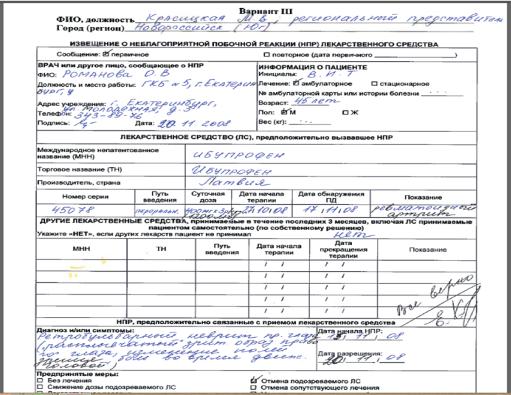 Вариант III
ФИО, должность Красицкая М.В., региональный представитель
Город (регион) Новороссийск (Юг)
ИЗВЕЩЕНИЕ О НЕБЛАГОПРИЯТНОЙ ПОБОЧНОЙ РЕАКЦИИ (НПР) ЛЕКАРСТВЕННОГО СРЕДСТВА
Сообщение: ☑ первичное □ повторное (дата первичного )
ВРАЧ или другое лицо, сообщающее о НПР
ФИО: РОМАНОВА О.В
Должность и место работы: ГКБ №5, г. Екатерин
бург, д
Адрес учреждения: г. Екатеринбург,
ул. Молодежная, д.
Телефон: 343-89-76
Подпись: Дата: 20 11 2008
ИНФОРМАЦИЯ О ПАЦИЕНТЕ
Инициалы: В. И. Т
Лечение: ☑ амбулаторное □ стационарное
№ амбулаторной карты или истории болезни
Возраст: 45 лет
Пол: ☑ М □ Ж
Вес (кг):
ЛЕКАРСТВЕННОЕ СРЕДСТВО (ЛС), предположительно вызвавшее НПР
Международное непатентованное
название (МНН) ИБУПРОФЕН
Торговое название (ТН) Ибупрофен
Производитель, страна Латвия
Номер серии Путь введения Суточная доза Дата начала терапии Дата обнаружения ПД Показание
45078 17 11 08 ревматоидный артрит
ДРУГИЕ ЛЕКАРСТВЕННЫЕ СРЕДСТВА, принимаемые в течение последних 3 месяцев, включая ЛС принимаемые
пациентом самостоятельно (по собственному решению)
Укажите «НЕТ», если других лекарств пациент не принимал нет
МНН ТН Путь введения Дата начала терапии Дата прекращения терапии Показание
/ / / /
/ / / /
/ / / /
/ / / /
Все верно
НПР, предположительно связанные с приемом лекарственного средства
Диагноз и/или симптомы:
Ретробульбарный неврит пр. глаза
глаза, изменение полей
боли во время движ.
Дата начала НПР:
11 08
Дата разрешения:
20 11 08
Предпринятые меры:
□ Без лечения ☑ Отмена подозреваемого ЛС
□ Снижение дозы подозреваемого ЛС □ Отмена сопутствующего лечения